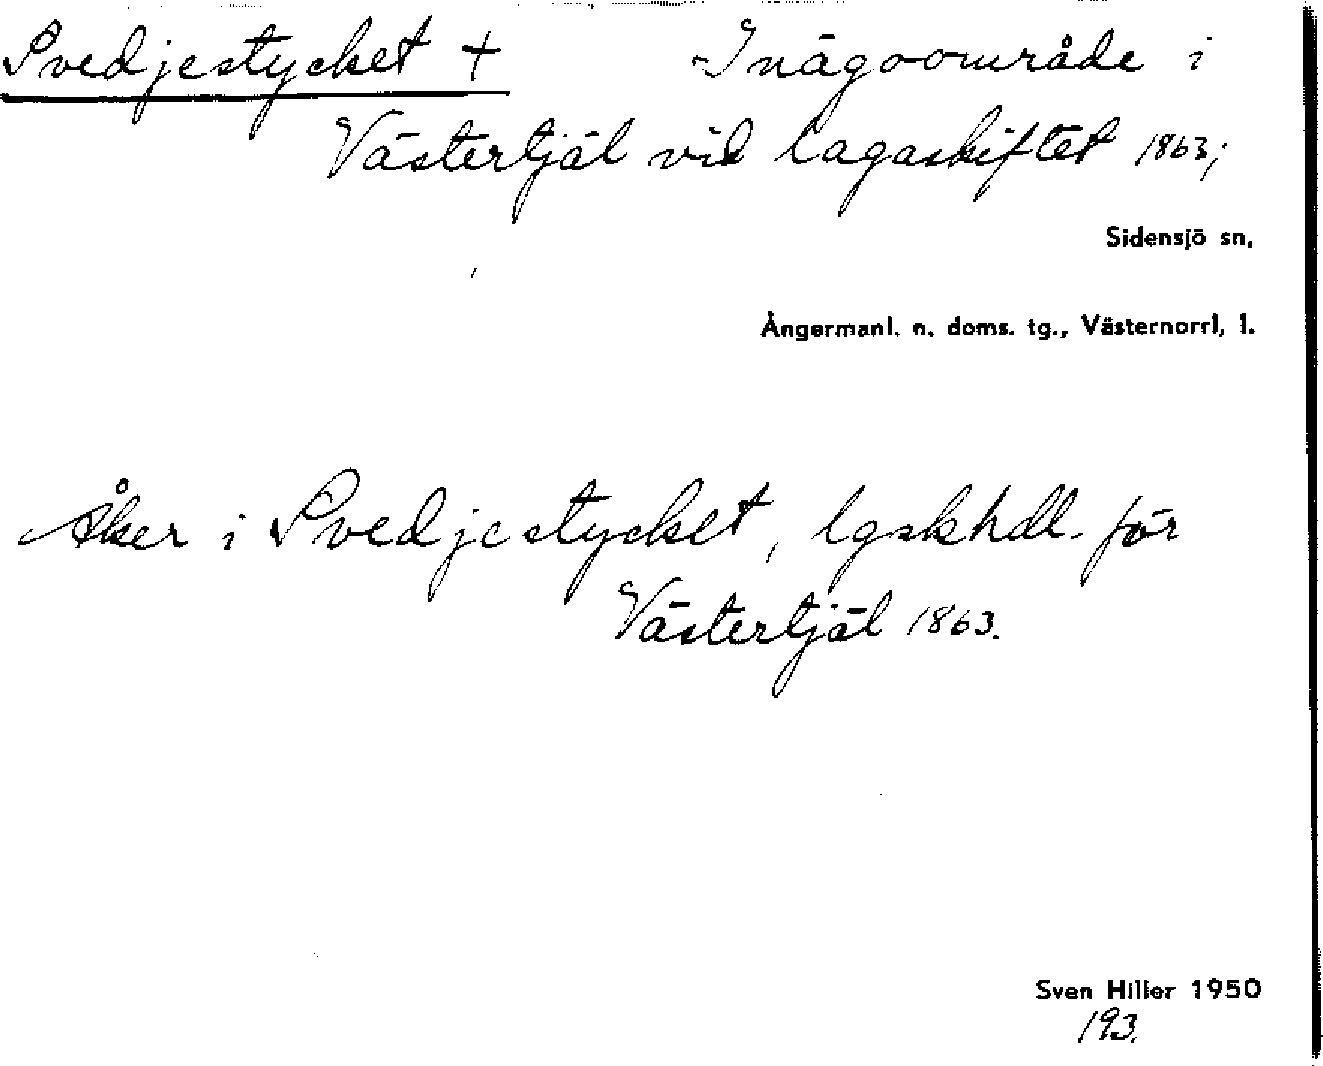 Svedjestycket + Inägoområde i
Västertjäl vid lagaskiftet 1863;
Sidensjö sn,
Ångermanl. n. doms. tg., Västernorrl, l.
Åker i Svedjestycket, lgskhdl. för
Västertjäl 1863.
Sven Hiller 1950
193.